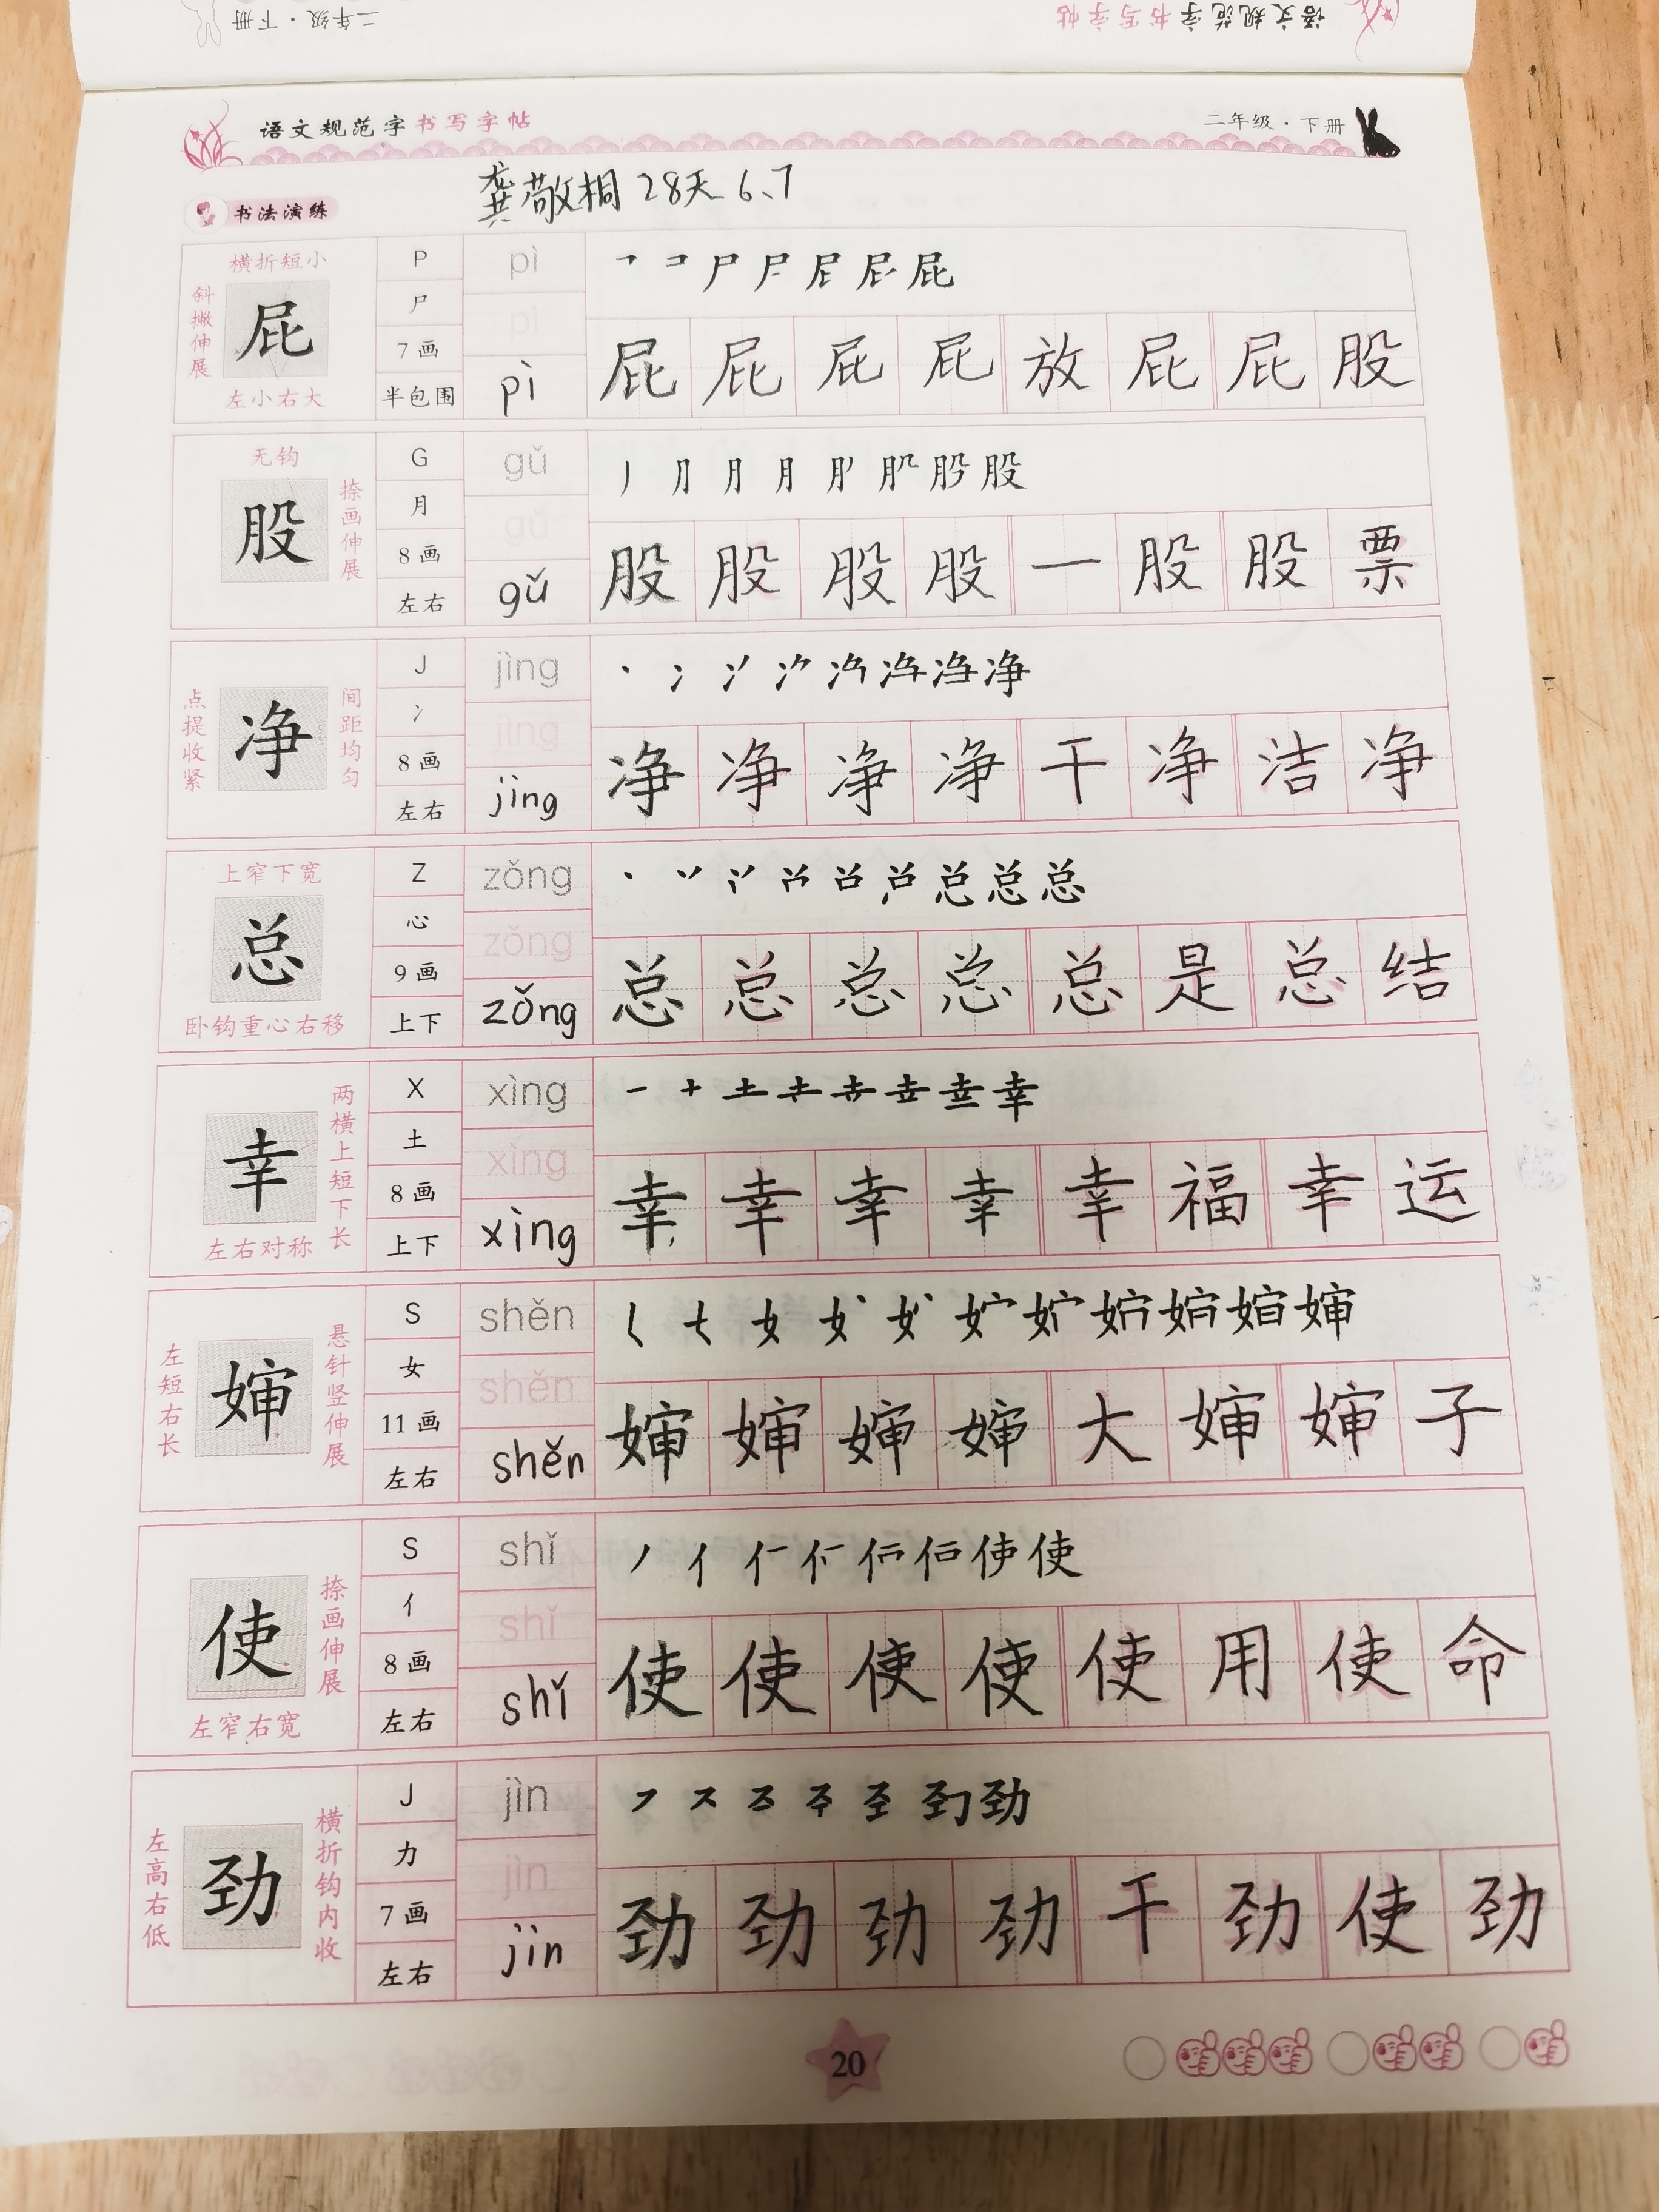 二年级·下册
语文规范字书写字帖
语文规范字书写字帖
二年级·下册
龚敬桐 28天 6、7
书法演练
横折短小
斜撇伸展
屁
左小右大
P
尸
7画
半包围
pì
pì
pì
屁 屁 屁 屁 放 屁 屁 股
无钩
股
捺画伸展
G
月
8画
左右
gǔ
gǔ
gǔ
股 股 股 股 一 股 股 票
点提收紧
净
间距均匀
J
冫
8画
左右
jìng
jìng
jìng
净 净 净 净 干 净 洁 净
上窄下宽
总
卧钩重心右移
Z
心
9画
上下
zǒng
zǒng
zǒng
总 总 总 总 总 是 总 结
两横上短下长
幸
左右对称
X
土
8画
上下
xìng
xìng
xìng
幸 幸 幸 幸 幸 福 幸 运
左短右长
婶
悬针竖伸展
S
女
11画
左右
shěn
shěn
shěn
婶 婶 婶 婶 大 婶 婶 子
使
捺画伸展
左窄右宽
S
亻
8画
左右
shǐ
shǐ
shǐ
使 使 使 使 使 用 使 命
左高右低
劲
横折钩内收
J
力
7画
左右
jìn
jìn
jìn
劲 劲 劲 劲 干 劲 使 劲
20